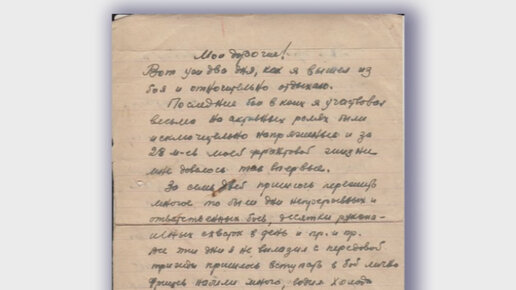 Мои дорогие!
Вот уж два дня, как я вышел из
боя и относительно отдыхаю.
Последние бои в коих я участвовал
весьма на активных ролях были
исключительно напряженные и за
28 м-сь моей фронтовой жизни
мне довелось так впервые.
За семь дней пришлось пережить
многое то были дни непрерывных и
ответственных боев, десятки рукопа-
шных схваток в день и пр. и пр.
все эти дни я не вылазил с передовой
трижды пришлось вступать в бой лично
фрицев набили много, одних